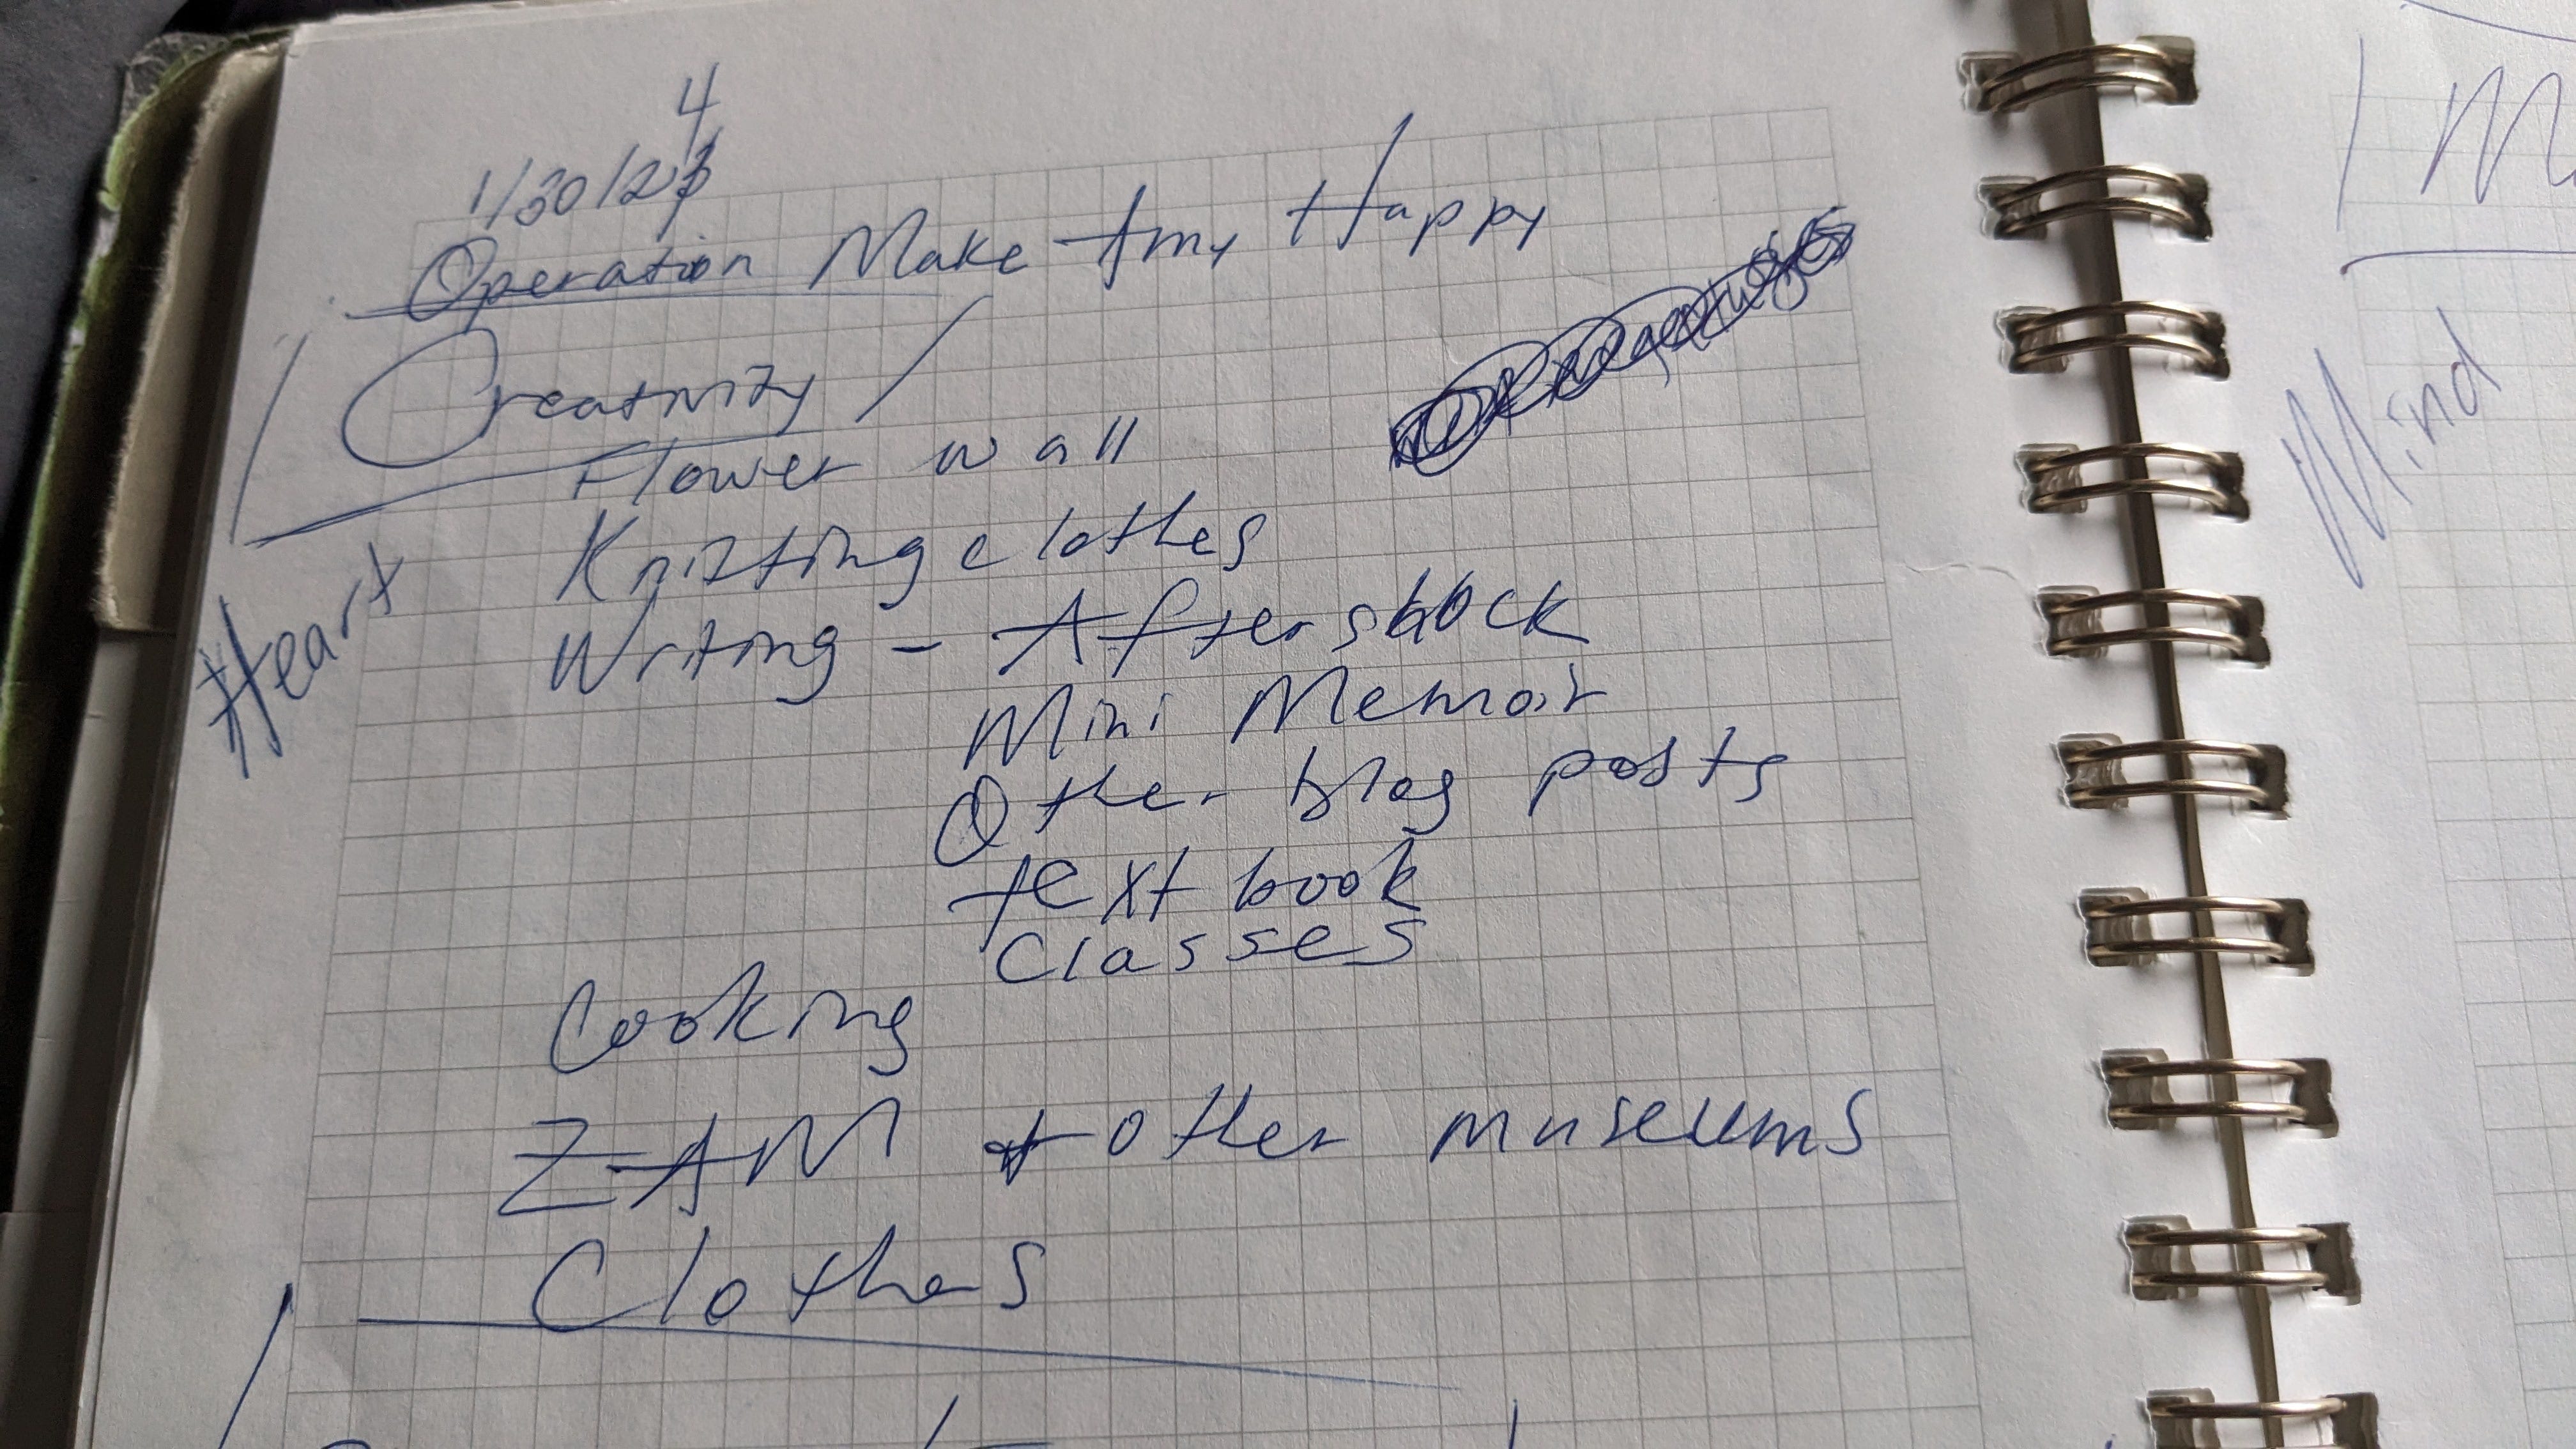 1/30/24
Operation Make Amy Happy
Creativity
Flower wall
Knitting clothes
Heart
Writing - Aftershock
Mini Memoir
Other blog posts
text book
Classes
Cooking
ZAM + other museums
Clothes
M
Mind